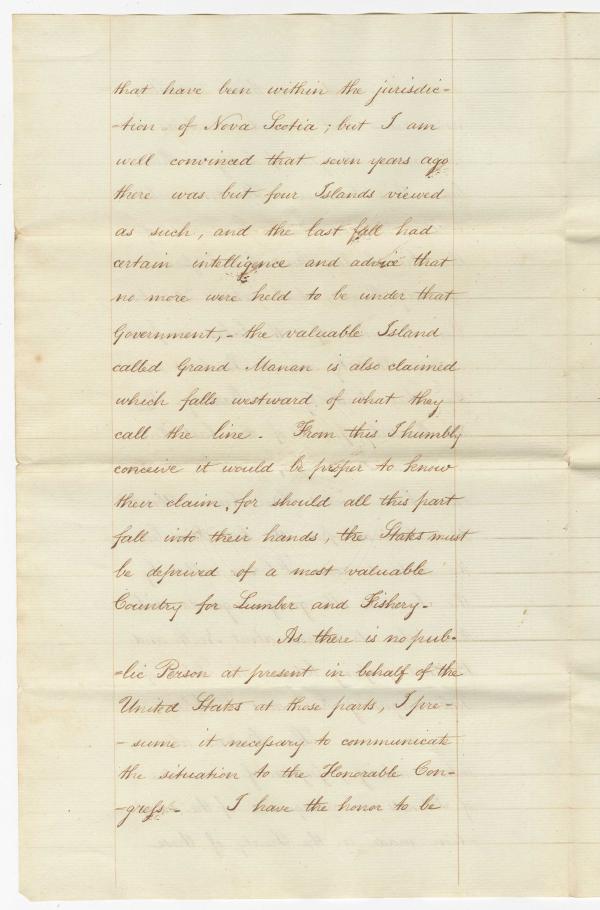 that have been within the jurisdic-
-tion of Nova Scotia; but I am
well convinced that seven years ago
there was but four Islands viewed
as such, and the last fall had
certain intelligence and advice that
no more were held to be under that
Government,- the valuable Island
called Grand Manan is also claimed
which falls westward of what they
call the line. From this I humbly
conceive it would be proper to know
their claim, for should all this part
fall into their hands, the States must
be deprived of a most valuable
Country for Lumber and Fishery-
As there is no pub-
-lic Person at present in behalf of the
United States at those parts, I pre-
-sume it necessary to communicate
the situation to the Honorable Con-
-gress- I have the honor to be